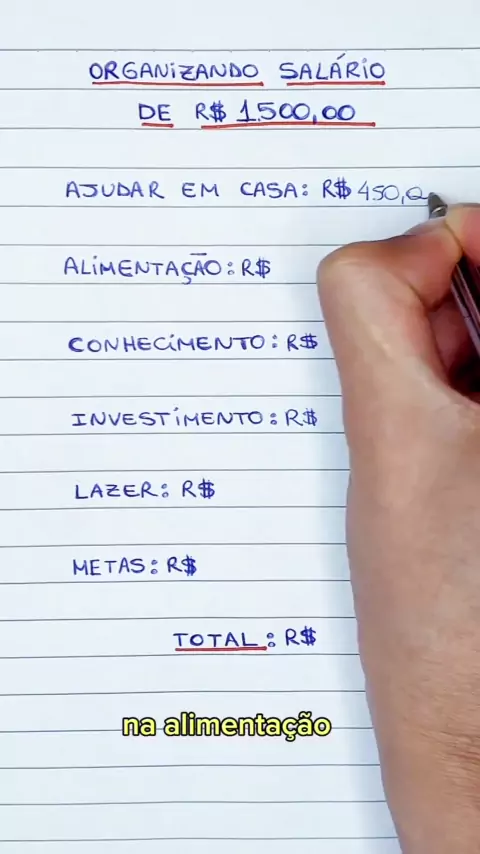 ORGANIZANDO SALÁRIO
DE R$ 1.500,00
AJUDAR EM CASA: R$ 450,0
ALIMENTAÇÃO: R$
CONHECIMENTO: R$
INVESTIMENTO: R$
LAZER: R$
METAS: R$
TOTAL: R$
na alimentação